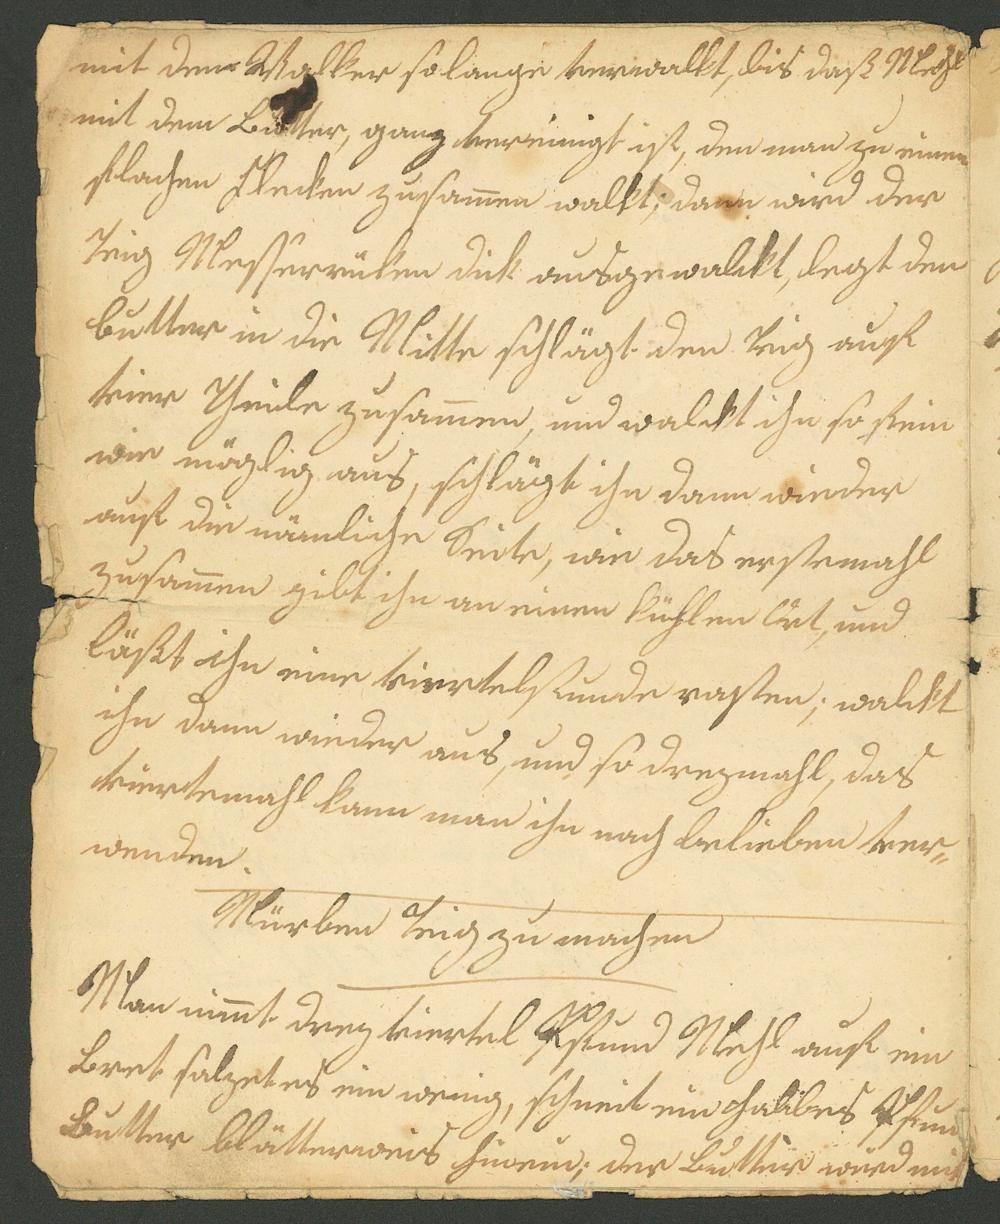 mit dem Walker solange verwalkt, bis daß Mehl
mit dem Butter, ganz vereinigt ist, den man zu einen
flachen Flecken zusam̄en walkt; dann wird der
Teig Messerrüken dick ausgewalckt, legt den
butter in die Mitte schlägt den Teig auf
vier Theile zusam̄en, und walckt ihn so fein
wie möglig aus, schlägt ihn dann wieder
auf die nämliche Seite, wie das erstemahl
zusam̄en gibt ihn an einen kühlen Ort, und
läßt ihn eine viertelstunde rasten; walckt
ihn dann wieder aus, und so dreymahl, das
viertemahl kann man ihn nach belieben ver„
wenden.
Mürben Teig zu machen
Man nim̄t drey viertel Pfund Mehl auf ein
Bret salzet es ein wenig, schneit ein halbes Pfun
Butter blätterweis hinein; der Butter wird mit